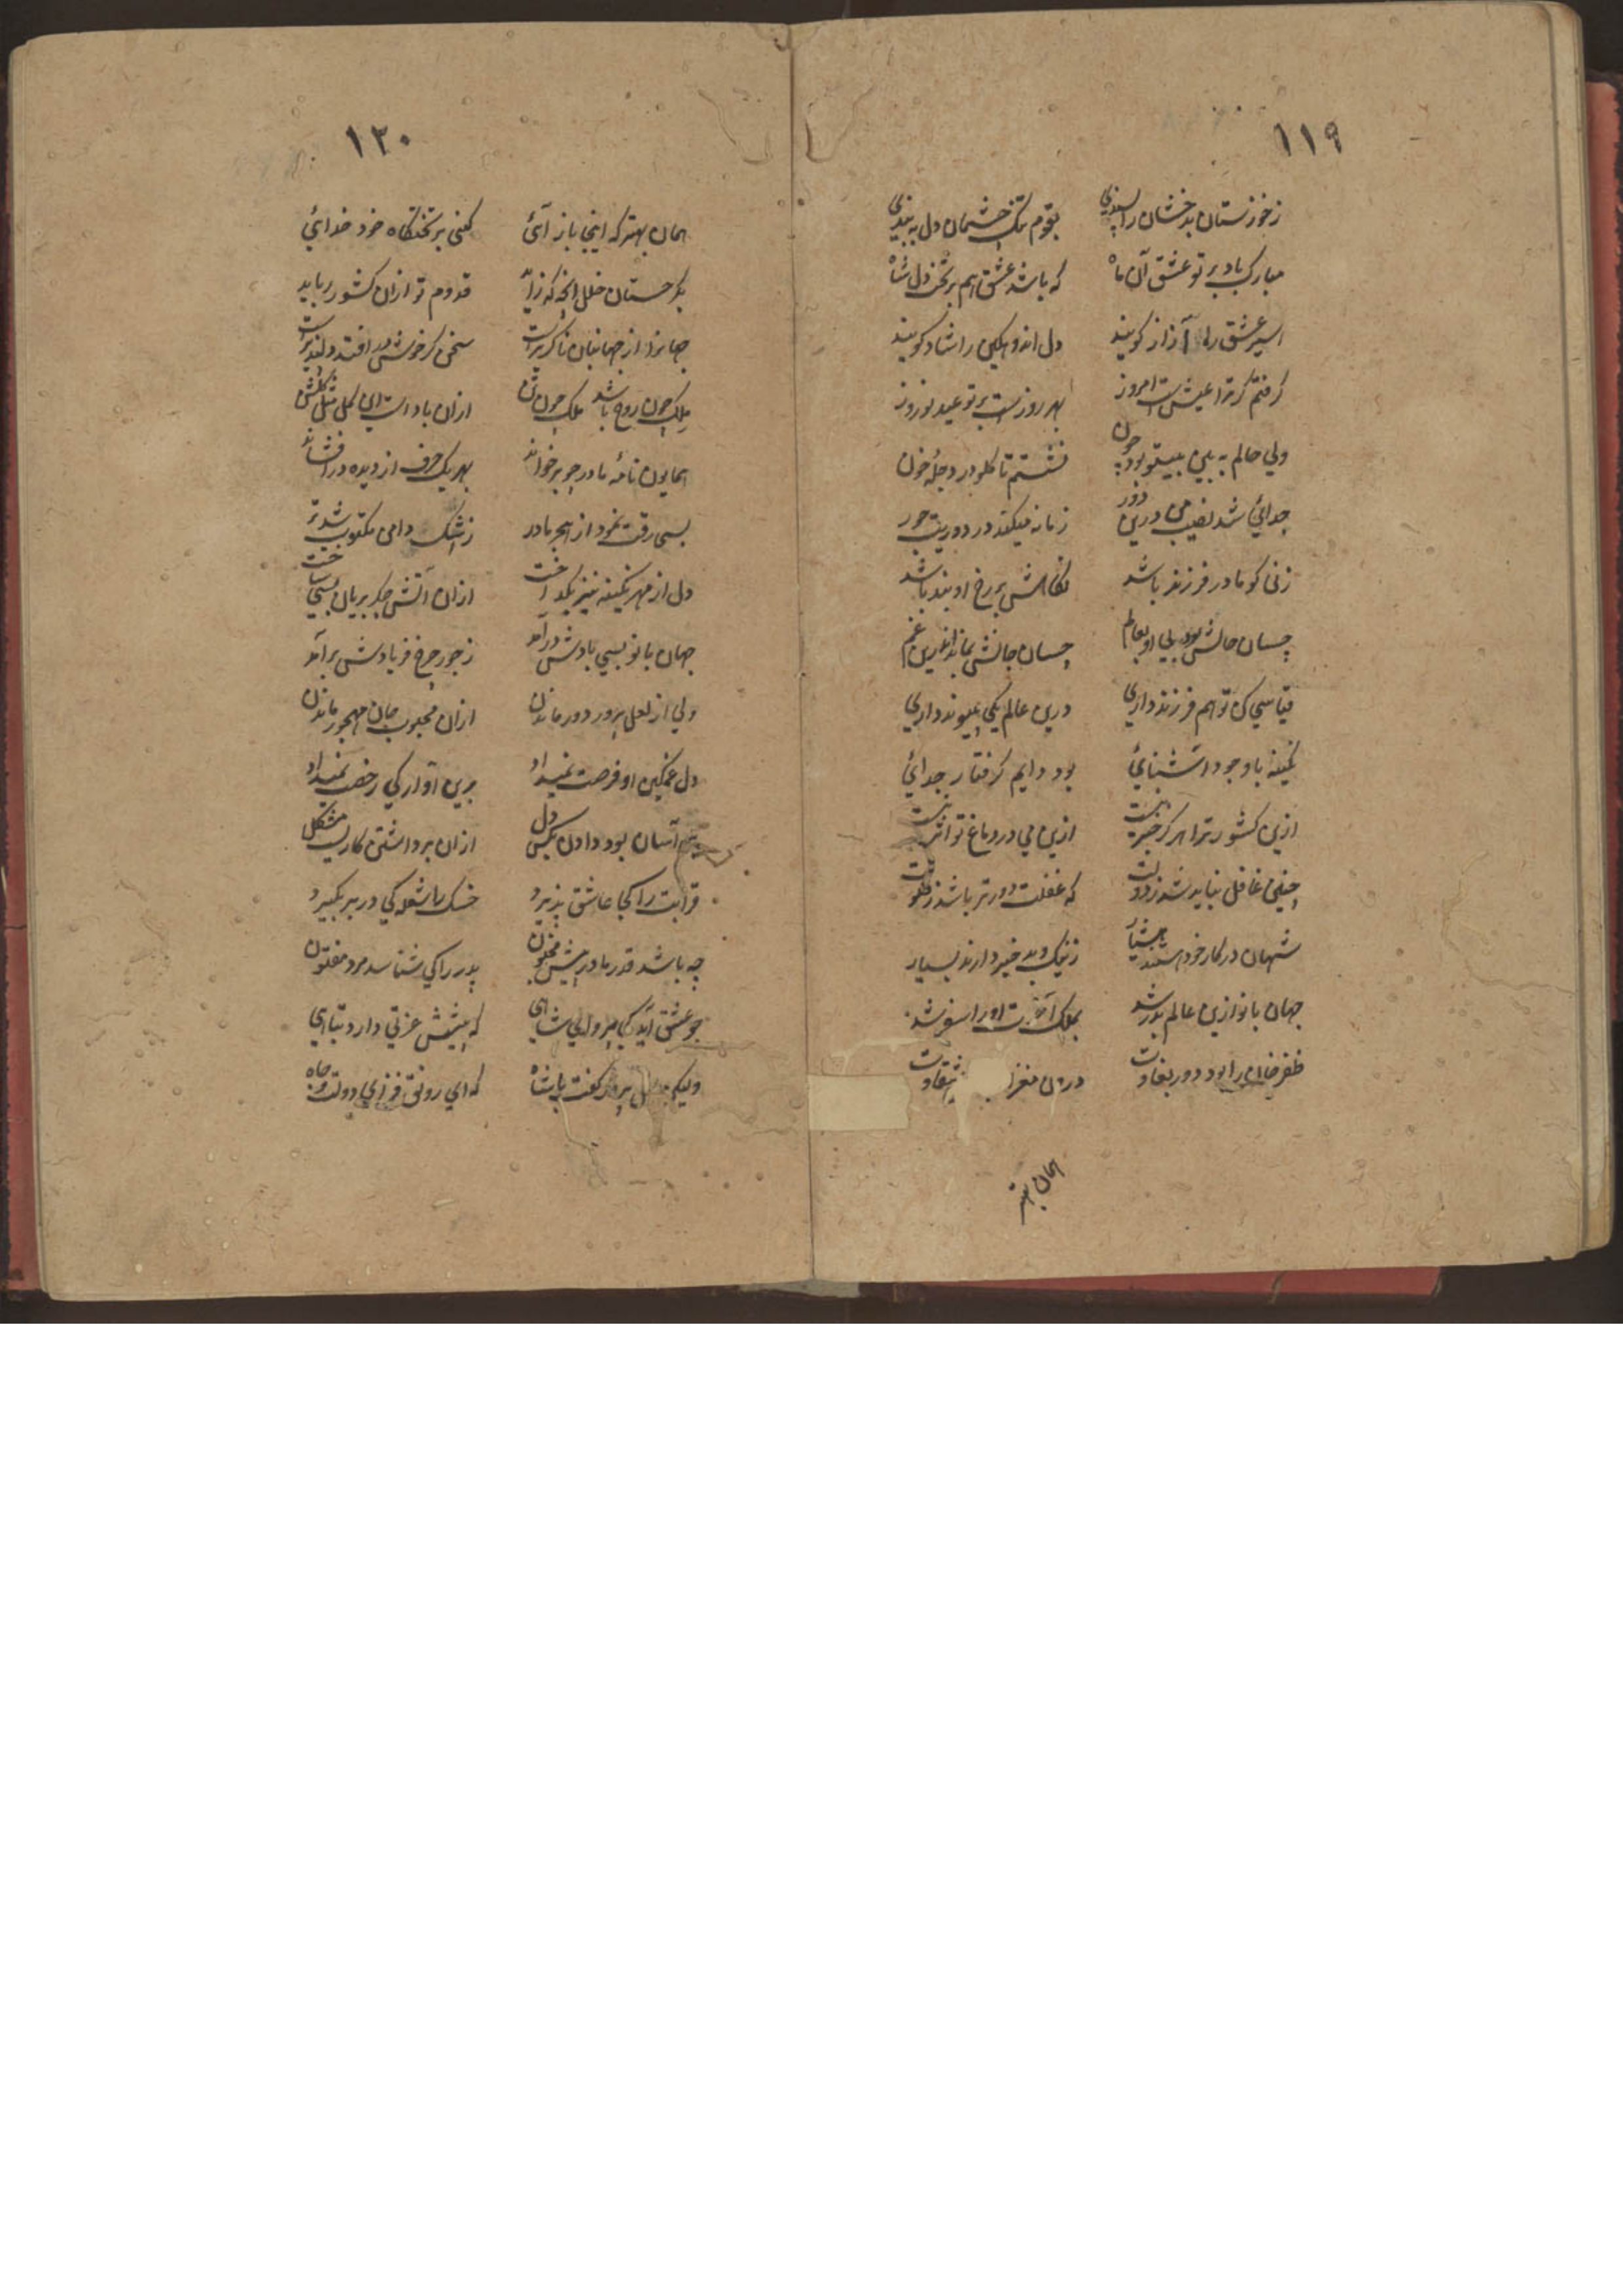 ١١٩
زخوزستان بدخشان را پسندي بقوم تنك چشمان دل به بندي
مبارك باد بر تو عشق آن ماه كه باشد عشق هم بر تخت دل شاه
اسير عشق را آزاد كويند دل اندوهكين را شاد كويند
كرفتم كه ترا عيش ست امروز بهر روزست بر تو عيد نوروز
ولي حالم به بين بيتو بود چون نشستم تا كلو در دجلهٔ خون
جدائي شد نصيب من درين دور زمانه ميكند در دور جور
زني كو مادر فرزند باشد نكاهش بر رخ او بند باشد
چسان حالش بود بي او بعالم چسان جانش بماند اندرين غم
قياسي كن تو هم فرزند داري درين عالم يكي پيوند داري
نكينه با وجود آشنائي بود دايم كرفتار جدائي
ازين كشور ترا هركز خبر نيست ازين مي در دماغ تو اثر نيست
چنين غافل نبايد شد ز دولت كه غفلت دورتر باشد ز
شهان در كار خود هستند هشيار ز نيك و بد خبر دارند بسيار
جهان بانو ازين عالم بدر شد بملك آخرت او را سفر شد
ظفرخان را بود دور بغاوت درون مغز شقاوت
همان بهتر
١٢٠
همان بهتر كه اينجا باز آئي كني بر تختكاه خود خدائي
بكرجستان خلل آنچه كه زايد قدوم تو ازان كشور ربايد
جهانرا از جهانبان ناكزيرست سخن كر خوش در افتد دلپذيرست
ملك چون روح باشد ملك چون تن ازان بادست اين كل مثل كلشن
همايون نامهٔ مادر چو بر خواند بهر يك حرف از ديده در افشاند
بسي رقت نمود از هجر مادر ز اشك دامن مكتوب شد تر
دل از مهر نكينه نيز بكداخت ازان آتش جكر بريان بسي ساخت
جهان بانو بسي يادش در آمد ز جور چرخ فريادش بر آمد
ولي از لعل پرور دور ماندن ازان محبوب جان مهجور ماندن
دل غمكين او فرصت نميداد برين آواركي رخصت نميداد
آسان بود دادن بكس دل ازان برداشتن كاريست مشكل
قرابت را كجا عاشق پذيرد خسك را شعله كي در بر بكيرد
چه باشد قدر مادر پيش مجنون پدر را كي شناسد مرد مفتون
چو عشق آيد كه پيشش عزتي دارد تباهي
وليكن پرور كفت با شاه كه اي رونق فزاي دولت و جاه